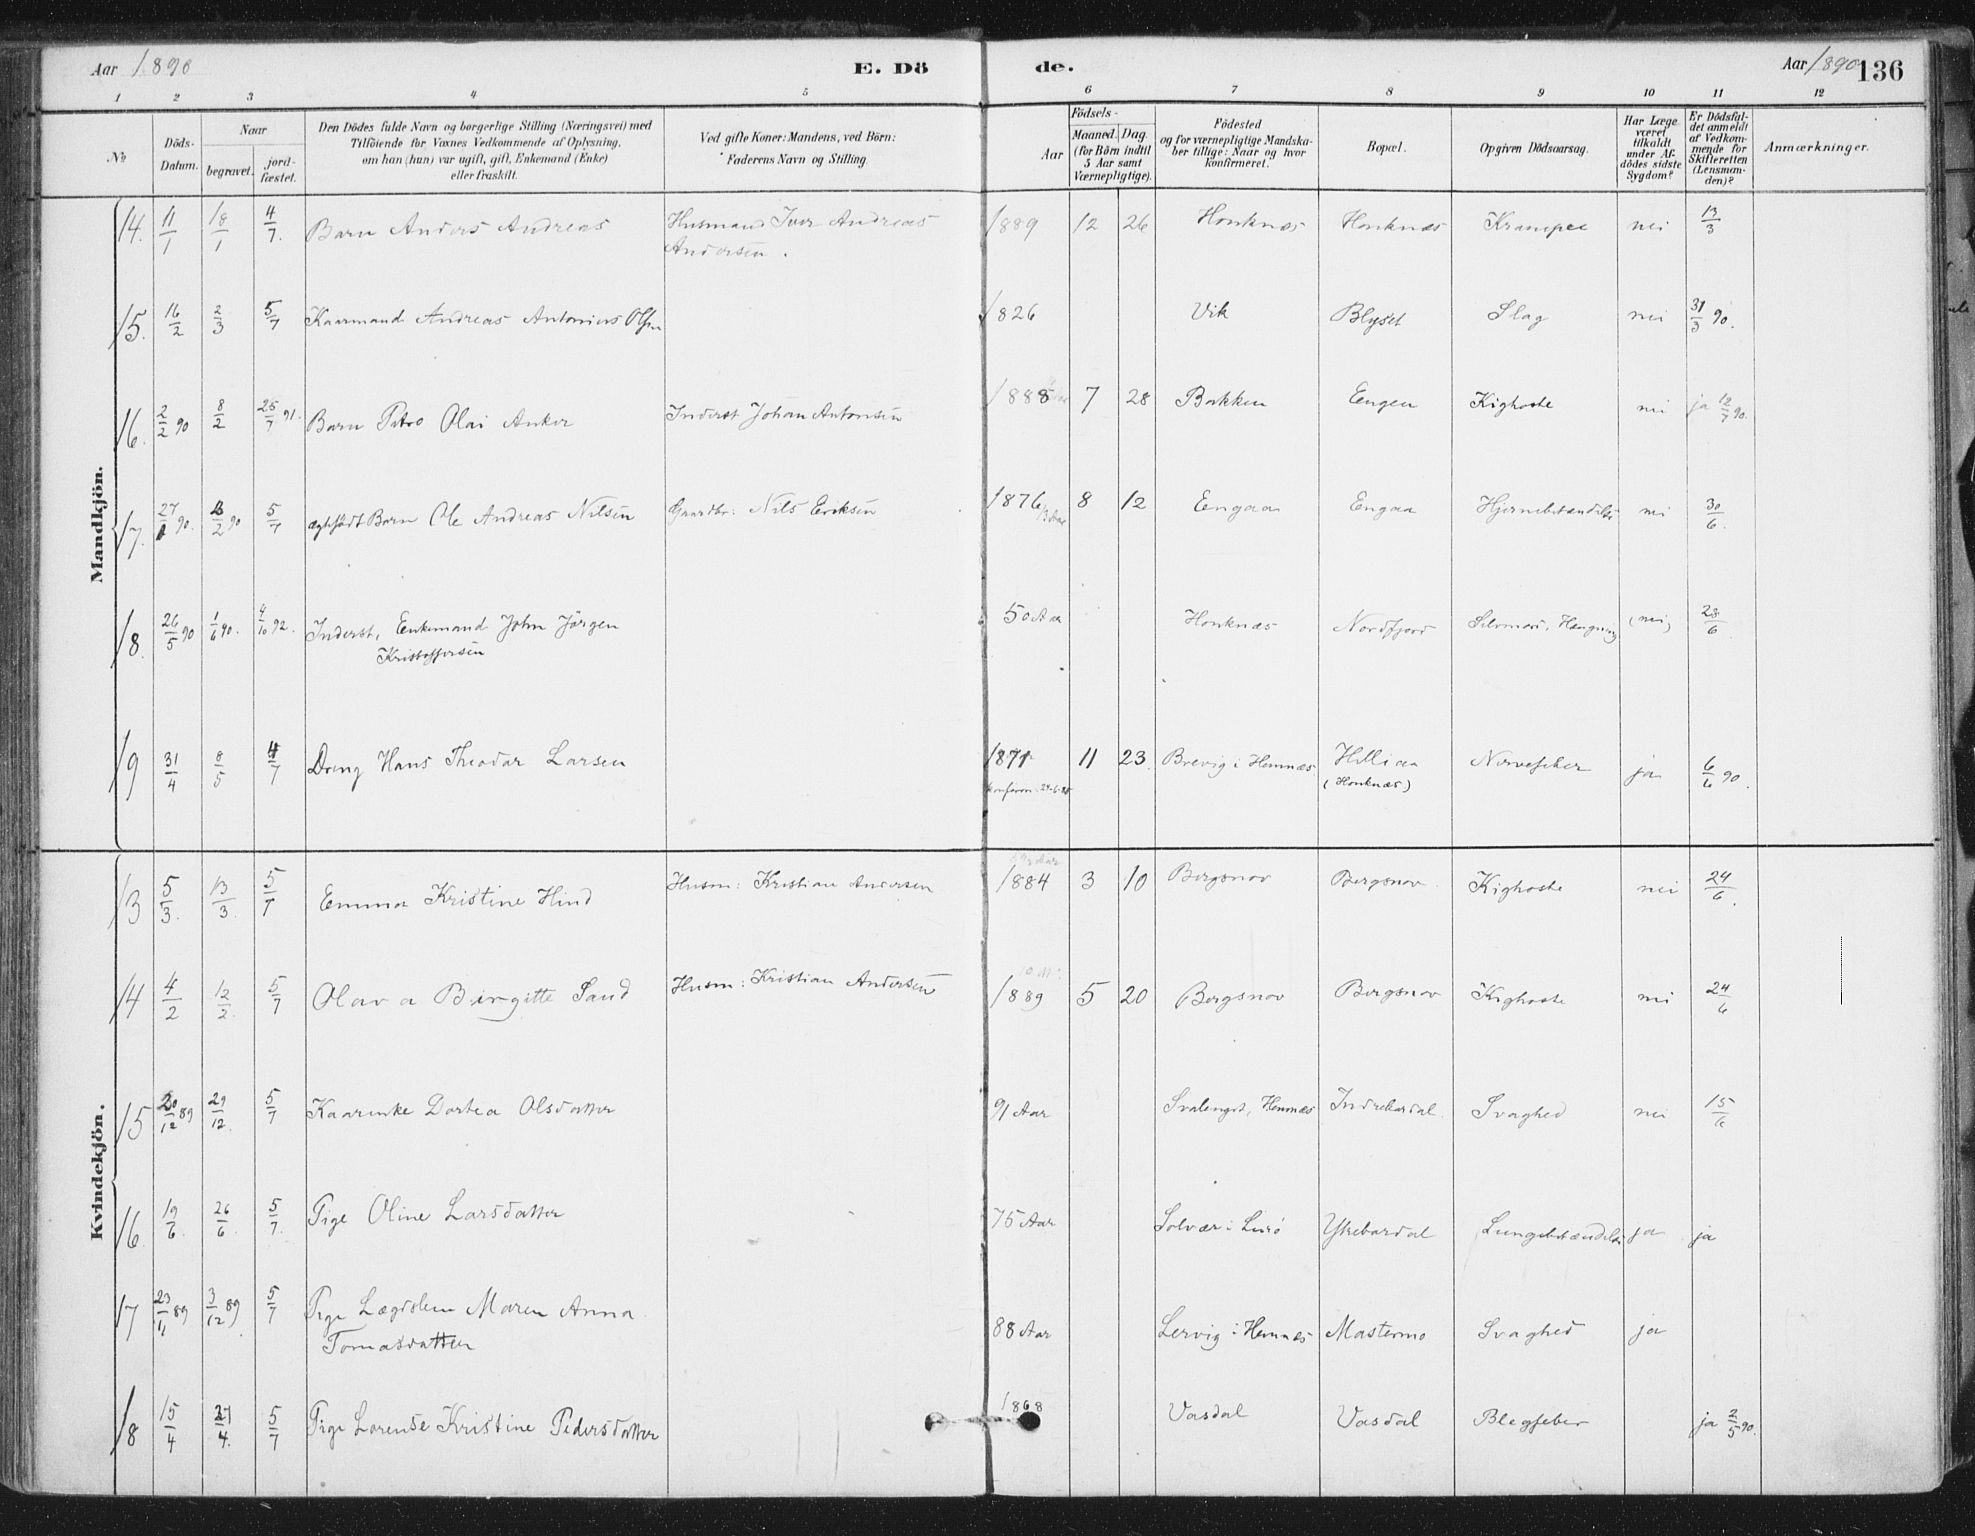 Aar 1890
E. Dö
de.
Aar 1890
136
1 2 3 4 5 6 7 8 9 10 11 12
№
Döds-
Datum.
Naar
begravet.
jord-
fæstet.
Den Dödes fulde Navn og borgerlige Stilling (Næringsvei) med
Tilföiende for Voxnes Vedkommende af Oplysning,
om han (hun) var ugift, gift, Enkemand (Enke)
eller fraskilt.
Ved gifte Koner: Mandens, ved Börn:
Faderens Navn og Stilling.
Födsels-
Aar
Maaned. Dag.
(for Börn indtil
5 Aar samt
Værnepligtige).
Födested
og for værnepligtige Mandska-
ber tillige: Naar og hvor
konfirmeret.
Bopæl.
Opgiven Dödsaarsag.
Har Læge
været
tilkaldt
under Af-
dödes sidste
Sygdom?
Er Dödsfal-
det anmeldt
af Vedkom-
mende for
Skifteretten
(Lensman-
den)?
Anmærkninger.
Mandkjön.
14. 11/1 18/1 4/7. Barn Anders Andreas Husmand Iver Andreas 1889 12 26 Honknæs Honknæs Krampee nei 13/3
Andersen.
15. 16/2 2/3 5/7 Kaarmand Andreas Antonius Olsen 1826 Vik Blyset Slag nei 31/3 90.
16. 2/2 90 8/2 25/7 91. Barn Petro Olai Anker Inderst Johan Antonsen 1888 7 28 Bakken Eengen Kighoste nei ja 12/7 90.
17. 27/1 90. 2/90 5/7 ægtefødt Barn Ole Andreas Nilsen Gaardbr: Nils Eriksen 1876 8 12 Eengaa Engaa Hjernebetændelse nei 30/6.
13 Aar
18. 26/5 90 1/6 90. 4/10 92. Inderst, Enkemand John Jørgen 50 Aar Honknæs Nordfjord Selvmord, Hængning (nei) 28/6
Kristoffersen
19 31/4 8/5 4/7 Dreng Hans Theodor Larsen 1871 11 23. Brevig i Hemnæs Hilliaa Nervefeber ja 6/6 90.
(Honknæs)
Kvindekjön.
13 5/3. 13/3. 5/7 Emma Kristine Hind Husm: Kristian Andersen 1884 3 10 Bergsnov Bergsnov. Kighoste nei 24/6.
14 4/2 12/2. 5/7 Olava Birgitte Sand Husm: Kristian Andersen 1889 5 20 Bergsnov Bergsnov Kighoste nei 24/6
15 20/12 89 29/12. 5/7 Kaarenke Dortea Olsdatter 91 Aar Svalenget, Hemnæs Indrebardal. Svaghed nei 15/6
16. 19/6. 26/6. 5/7. Pige Oline Larsdatter 75 Aar Solvær i Lurö Ytrebardal Lungebetændelse ja ja
17 23/11 89 3/12 89 5/7 Pige Lægdslem Maren Anna
Tomasdatter 88 Aar Lervig i Hemnæs Mastermo Svaghed ja
18 15/4 27/4. 5/7 Pige Lorense Kristine Pedersdatter 1868 Vasdal Vasdal Blegfeber ja 2/5 90.